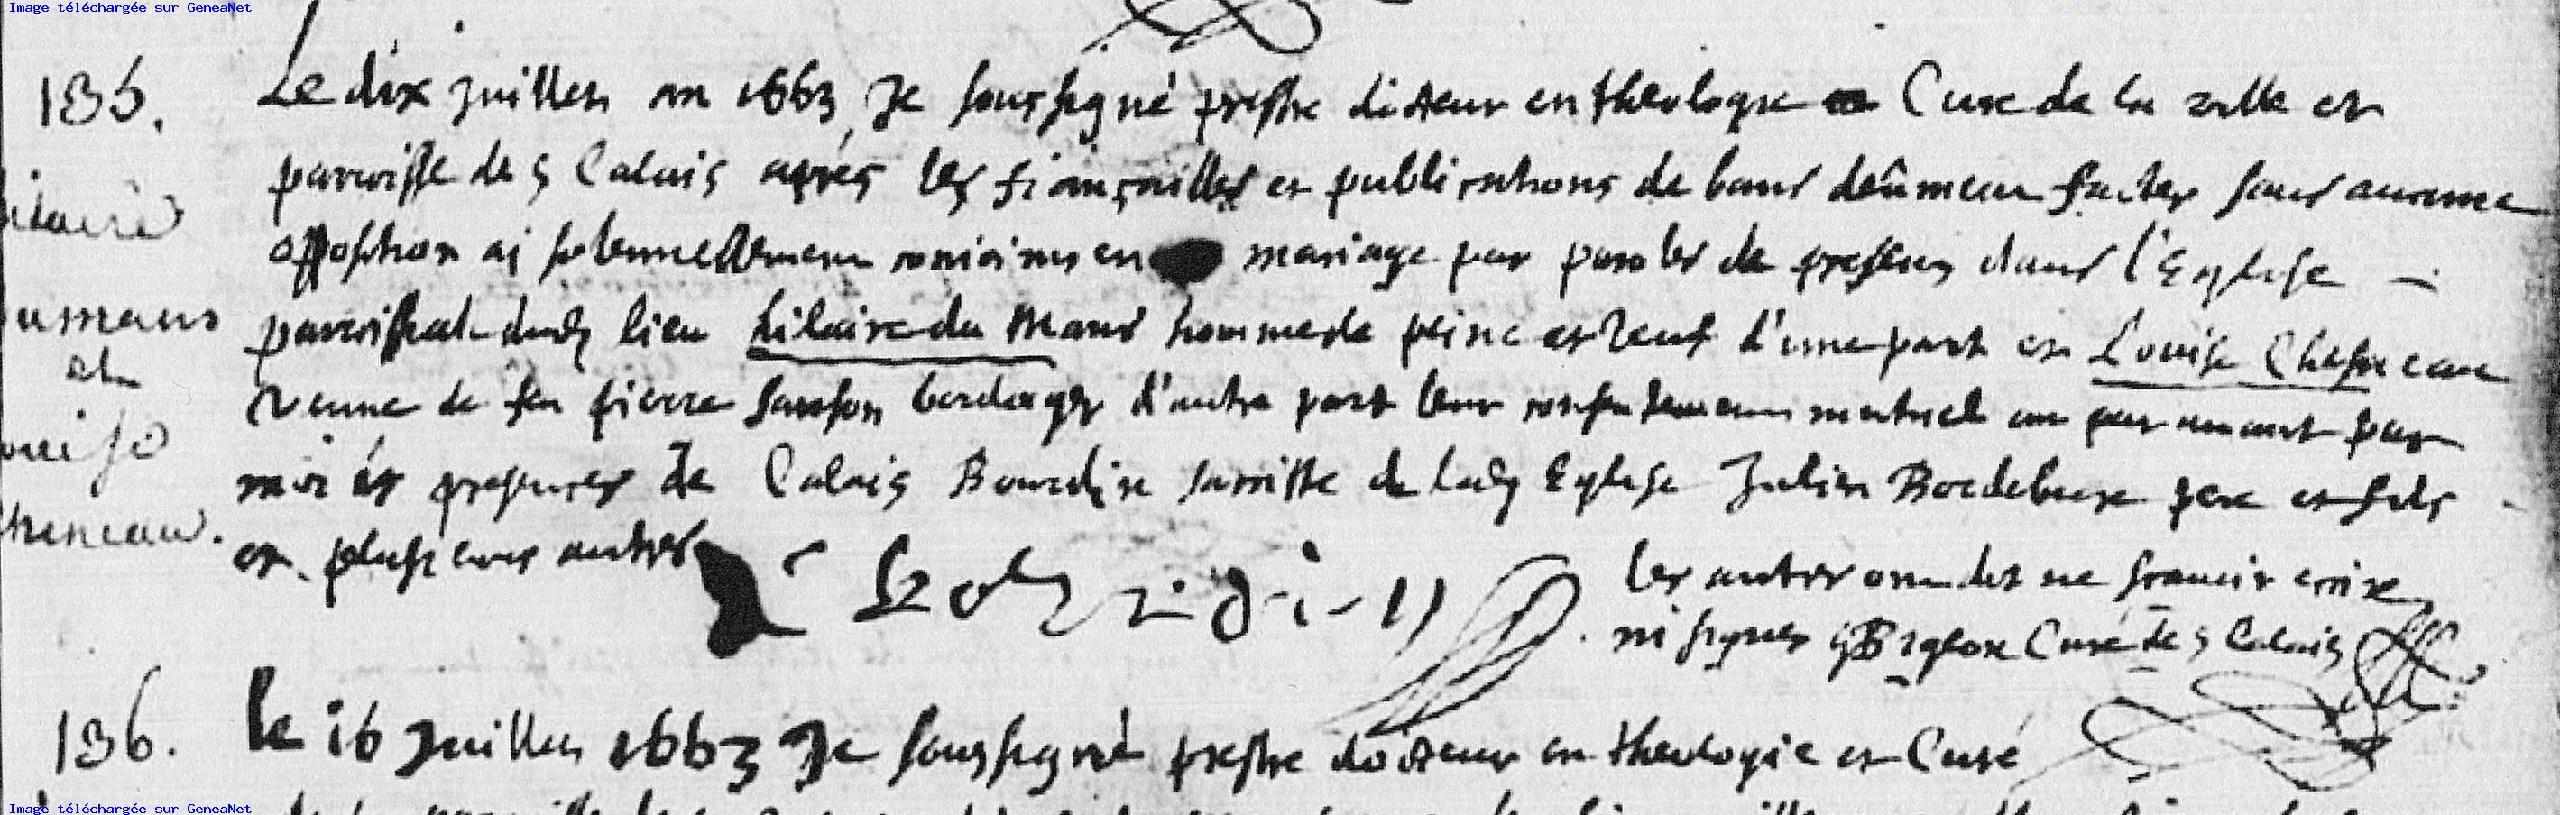 Image téléchargée sur GeneaNet
135. Le dix juillet an 1663 Je soussigné prestre docteur en theologie Curé de la ville et
parroisse de S Calais après les fiançailles et publications de bans deûment faictes sans aucune
opposition ai solennellement conioins en mariage par paroles de present dans l'Eglise
parroissial dudt lieu hilaire du Mans homme de peine et veuf d'une part et Louise Chesneau
veuve de feu pierre Sanson bordager d'autre part leur consentement mutuel par avant par
moi és presences de Calais Bourdin sacriste de ladt Eglise Julien pere et fils
et plusieurs autres
les autres ont dit ne scavoir ecrire
ni signer Curé de S Calais
umans
et
ouise
heneau.
136. le 16 Juillet 1663 Je soussigné prestre docteur en theologie et Curé
Image téléchargée sur GeneaNet